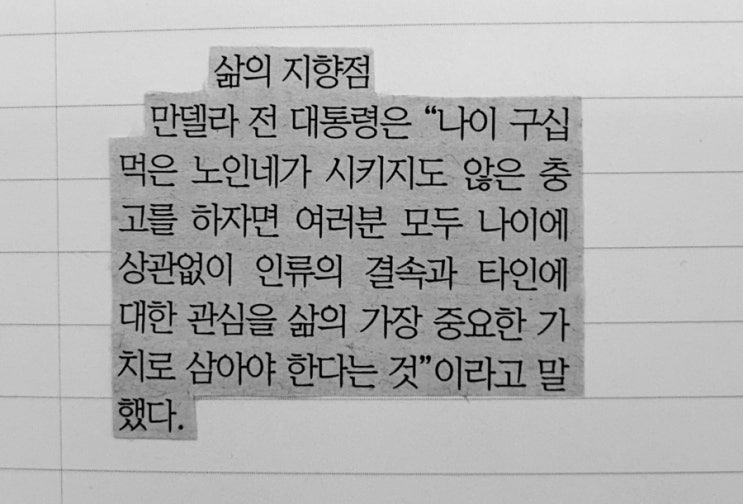 삶의 지향점
만델라 전 대통령은 “나이 구십
먹은 노인네가 시키지도 않은 충
고를 하자면 여러분 모두 나이에
상관없이 인류의 결속과 타인에
대한 관심을 삶의 가장 중요한 가
치로 삼아야 한다는 것”이라고 말
했다.